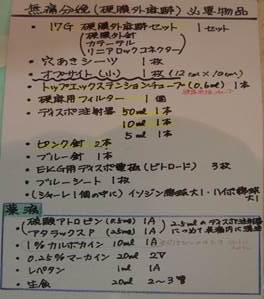 無痛分娩(硬膜外麻酔)必要物品
・17G 硬膜外麻酔セット 1セット
(硬膜外針
カテーテル
リニアロックコネクター)
・穴あきシーツ 1枚
・オプサイト(小) 1枚(12cm×10cm)
・トップエクステンションチューブ(0.6ml) 1本
・硬麻用フィルター 1個
・ディスポ注射器 50ml 1本
10ml 1本
5ml 1本
・ピンク針 2本
・ブルー針 1本
・EKG用ディスポ電極(ビトロード) 3枚
・ブルーシート 1枚
・(シャーレ1個の中に)イソジン綿球大1・ハイポ綿球大1
薬液
・(硫酸アトロピン(0.5ml) 1A
アタラックスP (25ml) 1A) 2.5mlのディスポ注射器
・1%カルボカイン 10ml 1A
・0.25%マーカイン 20ml 2V
・レペタン 1ml 1A
・生食 20ml 2〜3管